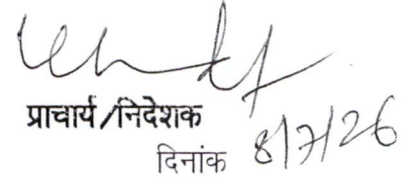 प्राचार्य/निदेशक
दिनांक 8/7/26